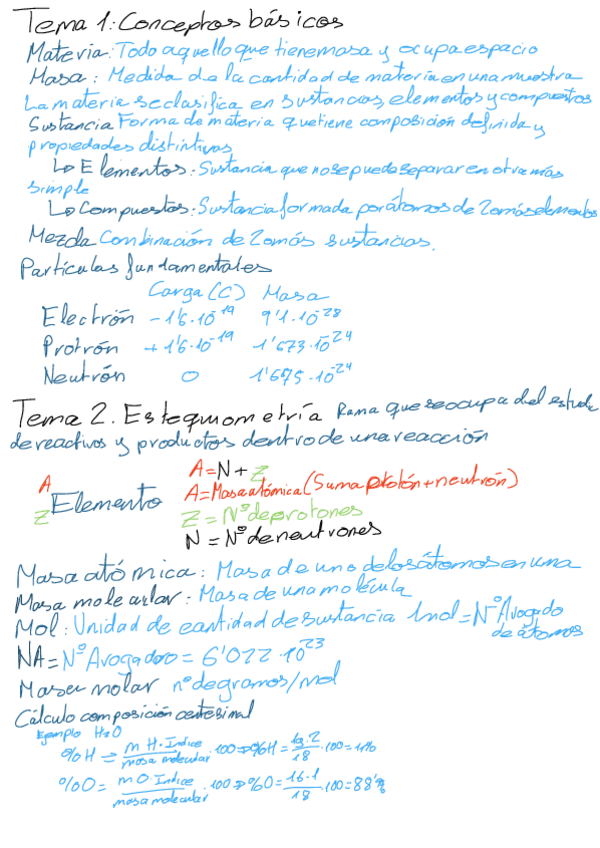 Tema 1: Conceptos básicos
Materia: Todo aquello que tiene masa y ocupa espacio
Masa: Medida de la cantidad de materia en una muestra
La materia se clasifica en sustancias, elementos y compuestos
Sustancia Forma de materia que tiene composición definida y
propiedades distintivas
↳ Elementos: Sustancia que no se puede separar en otra más
simple
↳ Compuestos: Sustancia formada por átomos de 2 o más elementos
Mezcla Combinación de 2 o más sustancias.
Partículas fundamentales
Carga (C) Masa
Electrón -1'6·10⁻¹⁹ 9'1·10⁻²⁸
Protrón +1'6·10⁻¹⁹ 1'673·10⁻²⁴
Neutrón 0 1'675·10⁻²⁴
Tema 2. Estequiometría Rama que se ocupa del estudio
de reactivos y productos dentro de una reacción
A=N+Z
A
Z Elemento
A=Masa atómica (Suma protón+neutrón)
Z=Nº de protones
N=Nº de neutrones
Masa atómica: Masa de uno de los átomos en una
Masa molecular: Masa de una molécula
Mol: Unidad de cantidad de sustancia 1mol=Nº Avogado
de átomos
NA=Nº Avogadoro=6'022·10²³
Masa molar nº de gramos/mol
Cálculo composición centesimal
Ejemplo H2O
%H = m H·Indice / masa molecular ·100 ⇒ %H = 1g·2 / 18 ·100 = 11%
%O = m O·Indice / masa molecular ·100 ⇒ %O = 16·1 / 18 ·100 = 88'